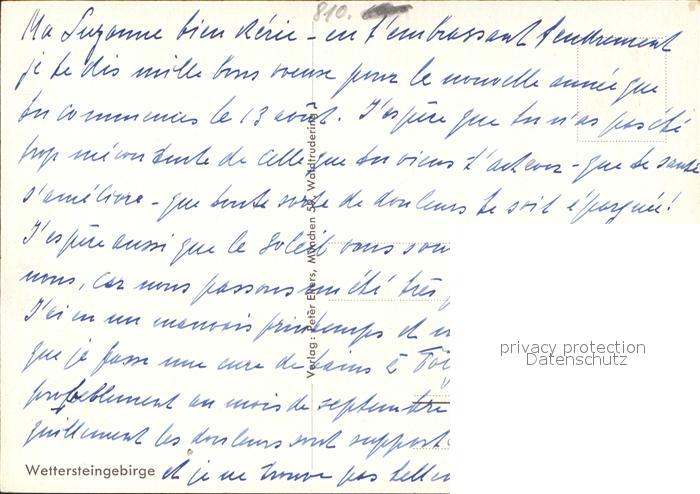 810.
Ma Suzanne bien chérie - en t'embrassant tendrement
je te dis mille bons voeux pour la nouvelle année que
tu commences le 13 août. J'espère que tu n'as pas été
trop mécontente de celle que tu viens d'achever - que ta santé
s'améliore - que toute sorte de douleurs te soit épargnée!
J'espère aussi que le soleil vous
nous, car nous passons un été très
J'ai eu un mauvais printemps et
que je fasse une cure de bains à
probablement au mois de septembre
les douleurs sont support
et je ne trouve pas
Wettersteingebirge
Verlag: Peter Ehlers, München 59, Waldtrudering
privacy protection
Datenschutz